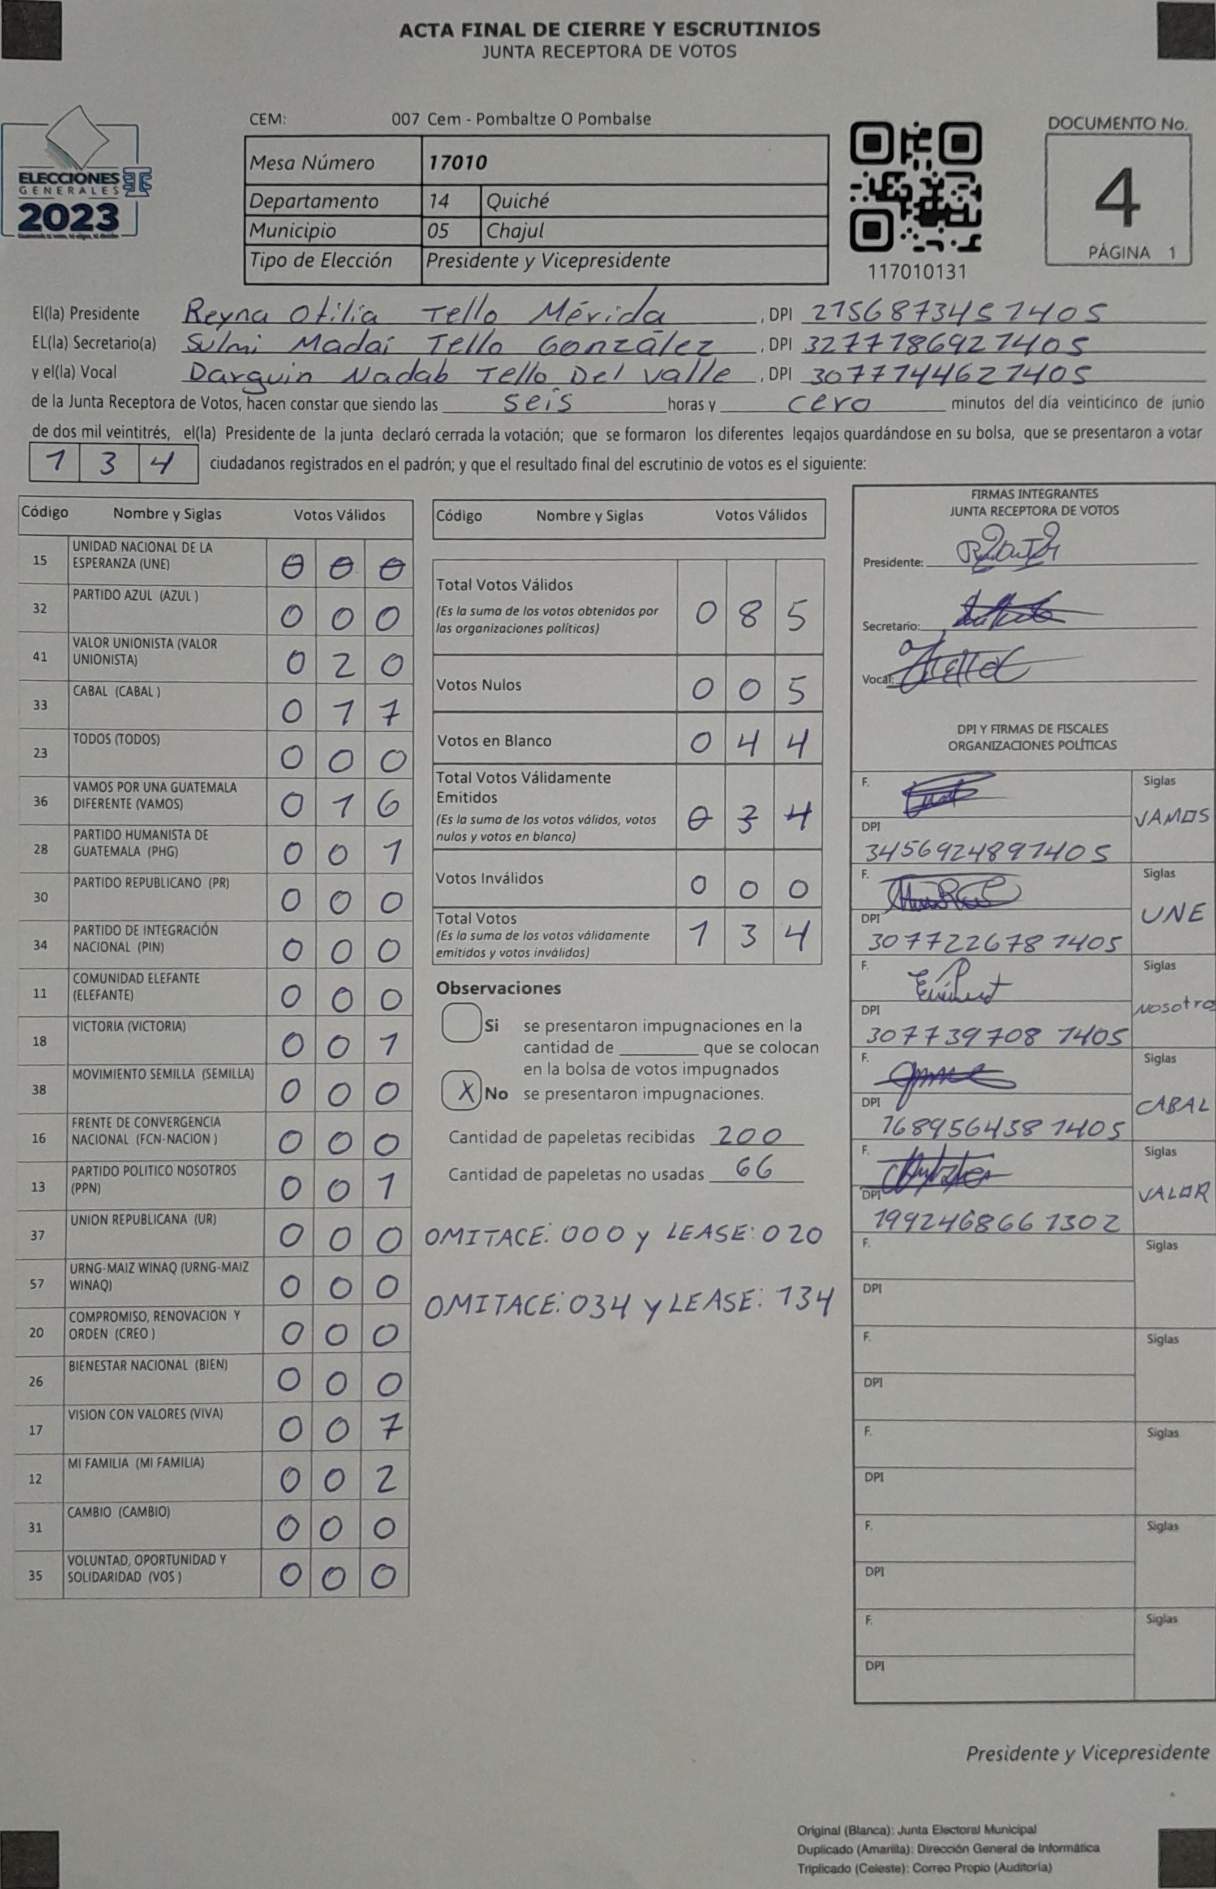 ACTA FINAL DE CIERRE Y ESCRUTINIOS
JUNTA RECEPTORA DE VOTOS
ELECCIONES
GENERALES
2023
CEM: 007 Cem - Pombaltze O Pombalse
Mesa Número 17010
Departamento 14 Quiché
Municipio 05 Chajul
Tipo de Elección Presidente y Vicepresidente
117010131
DOCUMENTO No.
4
PÁGINA 1
El(la) Presidente Reyna Otilia Tello Mérida, DPI 2756873457405
EL(la) Secretario(a) Sulmi Madaí Tello González, DPI 3277786927405
y el(la) Vocal Darguin Nadab Tello Del valle, DPI 3077744627405
de la Junta Receptora de Votos, hacen constar que siendo las seis horas y cero minutos del día veinticinco de junio
de dos mil veintitrés, el(la) Presidente de la junta declaró cerrada la votación; que se formaron los diferentes legajos guardándose en su bolsa, que se presentaron a votar
1 3 4 ciudadanos registrados en el padrón; y que el resultado final del escrutinio de votos es el siguiente:
Código Nombre y Siglas Votos Válidos
15 UNIDAD NACIONAL DE LA
ESPERANZA (UNE) 0 0 0
32 PARTIDO AZUL (AZUL ) 0 0 0
41 VALOR UNIONISTA (VALOR
UNIONISTA) 0 2 0
33 CABAL (CABAL ) 0 1 7
23 TODOS (TODOS) 0 0 0
36 VAMOS POR UNA GUATEMALA
DIFERENTE (VAMOS) 0 1 6
28 PARTIDO HUMANISTA DE
GUATEMALA (PHG) 0 0 1
30 PARTIDO REPUBLICANO (PR) 0 0 0
34 PARTIDO DE INTEGRACIÓN
NACIONAL (PIN) 0 0 0
11 COMUNIDAD ELEFANTE
(ELEFANTE) 0 0 0
18 VICTORIA (VICTORIA) 0 0 1
38 MOVIMIENTO SEMILLA (SEMILLA) 0 0 0
16 FRENTE DE CONVERGENCIA
NACIONAL (FCN-NACION ) 0 0 0
13 PARTIDO POLITICO NOSOTROS
(PPN) 0 0 1
37 UNION REPUBLICANA (UR) 0 0 0
57 URNG-MAIZ WINAQ (URNG-MAIZ
WINAQ) 0 0 0
20 COMPROMISO, RENOVACION Y
ORDEN (CREO ) 0 0 0
26 BIENESTAR NACIONAL (BIEN) 0 0 0
17 VISION CON VALORES (VIVA) 0 0 7
12 MI FAMILIA (MI FAMILIA) 0 0 2
31 CAMBIO (CAMBIO) 0 0 0
35 VOLUNTAD, OPORTUNIDAD Y
SOLIDARIDAD (VOS ) 0 0 0
Código Nombre y Siglas Votos Válidos
Total Votos Válidos
(Es la suma de los votos obtenidos por
las organizaciones políticas) 0 8 5
Votos Nulos 0 0 5
Votos en Blanco 0 4 4
Total Votos Válidamente
Emitidos
(Es la suma de los votos válidos, votos
nulos y votos en blanco) 0 3 4
Votos Inválidos 0 0 0
Total Votos
(Es la suma de los votos válidamente
emitidos y votos inválidos) 1 3 4
Observaciones
Si se presentaron impugnaciones en la
cantidad de ________ que se colocan
en la bolsa de votos impugnados
X No se presentaron impugnaciones.
Cantidad de papeletas recibidas 200
Cantidad de papeletas no usadas 66
OMITACE: 000 y LEASE: 020
OMITACE: 034 y LEASE: 134
FIRMAS INTEGRANTES
JUNTA RECEPTORA DE VOTOS
Presidente:
Secretario:
Vocal:
DPI Y FIRMAS DE FISCALES
ORGANIZACIONES POLÍTICAS
F. Siglas
DPI VAMOS
3456924897405
F. Siglas
DPI UNE
3077226787405
F. Siglas
DPI Nosotro
3077397087405
F. Siglas
DPI CABAL
7689564587405
F. Siglas
DPI VALOR
1992468661302
F. Siglas
DPI
F. Siglas
DPI
F. Siglas
DPI
F. Siglas
DPI
F. Siglas
DPI
Presidente y Vicepresidente
Original (Blanca): Junta Electoral Municipal
Duplicado (Amarilla): Dirección General de Informática
Triplicado (Celeste): Correo Propio (Auditoría)